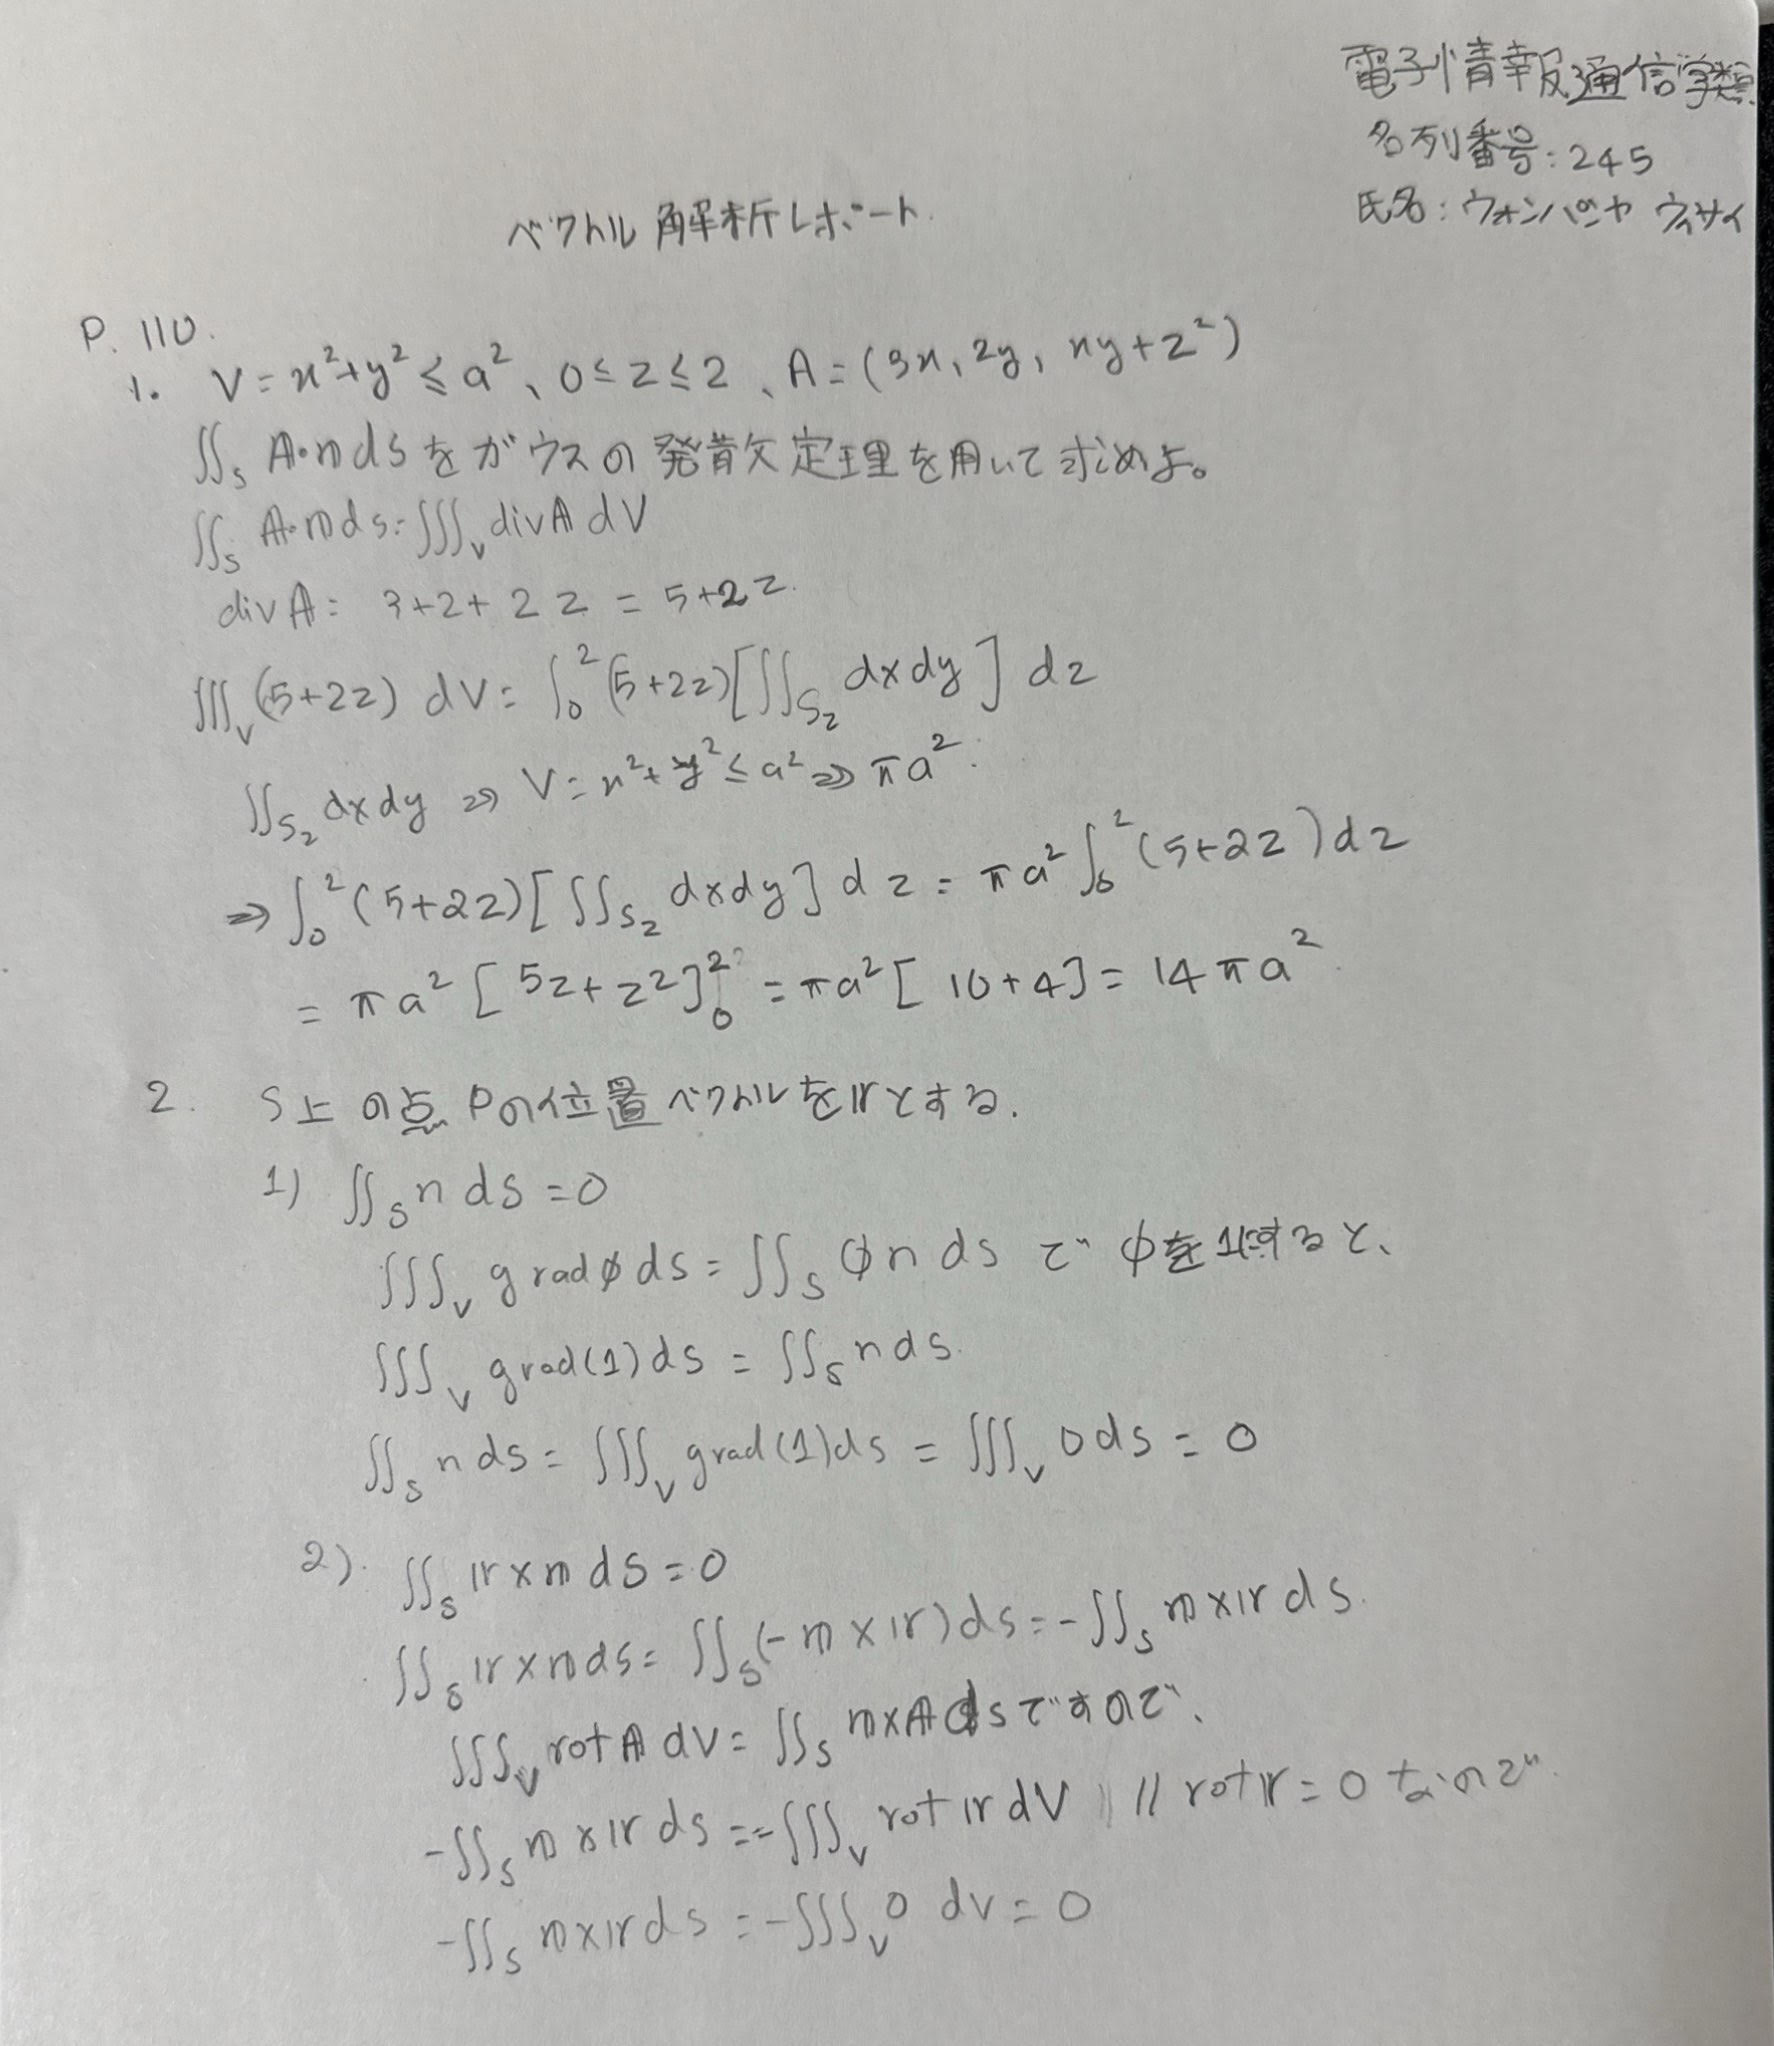 電子情報通信学類
名列番号:245
氏名:ウォンパンヤ ウィサイ
ベクトル解析レポート.
P. 110.
1. V = x²+y² ≤ a²、0≤z≤2、A = (3x, 2y, xy+z²)
∬_S A・n dS を ガウスの発散定理を用いて求めよ。
∬_S A・n ds = ∭_V div A dV
div A = 3+2+2z = 5+2z.
∭_V (5+2z) dV = ∫₀² (5+2z)[∬_{S_z} dxdy] dz
∬_{S_z} dxdy ⇒ V = x²+y² ≤ a² ⇒ πa².
⇒ ∫₀² (5+2z)[∬_{S_z} dxdy] dz = πa² ∫₀² (5+2z) dz
= πa² [5z+z²]₀² = πa² [10+4] = 14πa²
2. S上の点Pの位置ベクトルをrとする.
1) ∬_S n dS = 0
∭_V grad φ ds = ∬_S φ n ds で φを1にすると、
∭_V grad(1) ds = ∬_S n ds.
∬_S n ds = ∭_V grad(1) ds = ∭_V 0 ds = 0
2). ∬_S r×n dS = 0
∬_S r×n ds = ∬_S (-n×r) ds = -∬_S n×r ds.
∭_V rot A dV = ∬_S n×A ds ですので、
-∬_S n×r ds = -∭_V rot r dV // rot r = 0 なので
-∬_S n×r ds = -∭_V 0 dv = 0